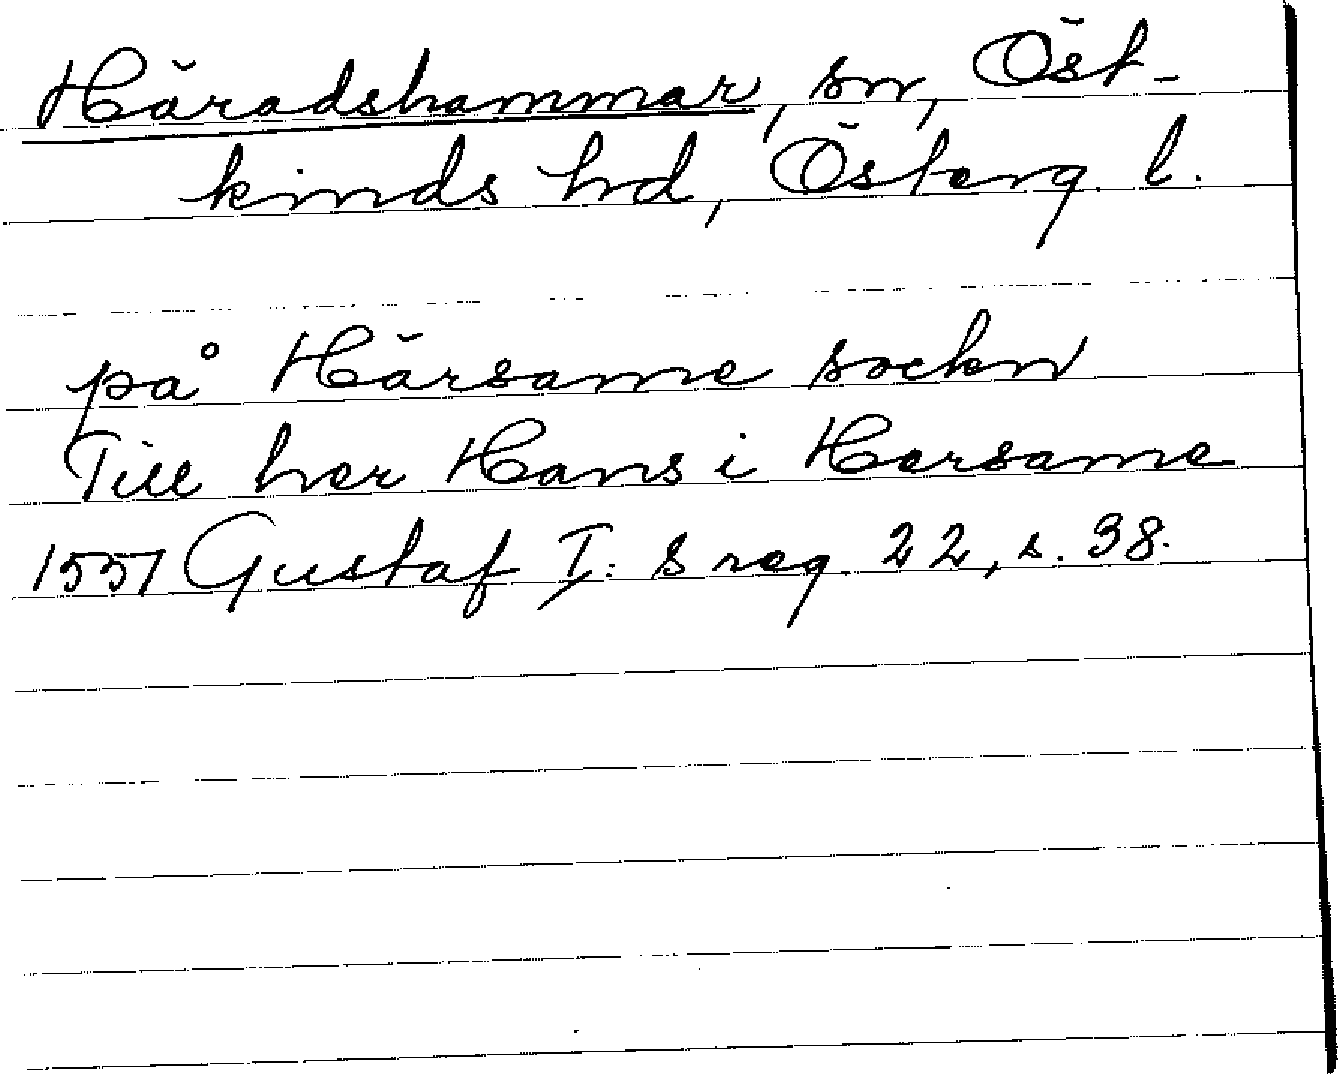 Häradshammar, sn, Öst-
kinds hd, Österg. l.
på Härsame sockn
Till her Hans i Hersame
1551 Gustaf I: s reg 22, s. 38.